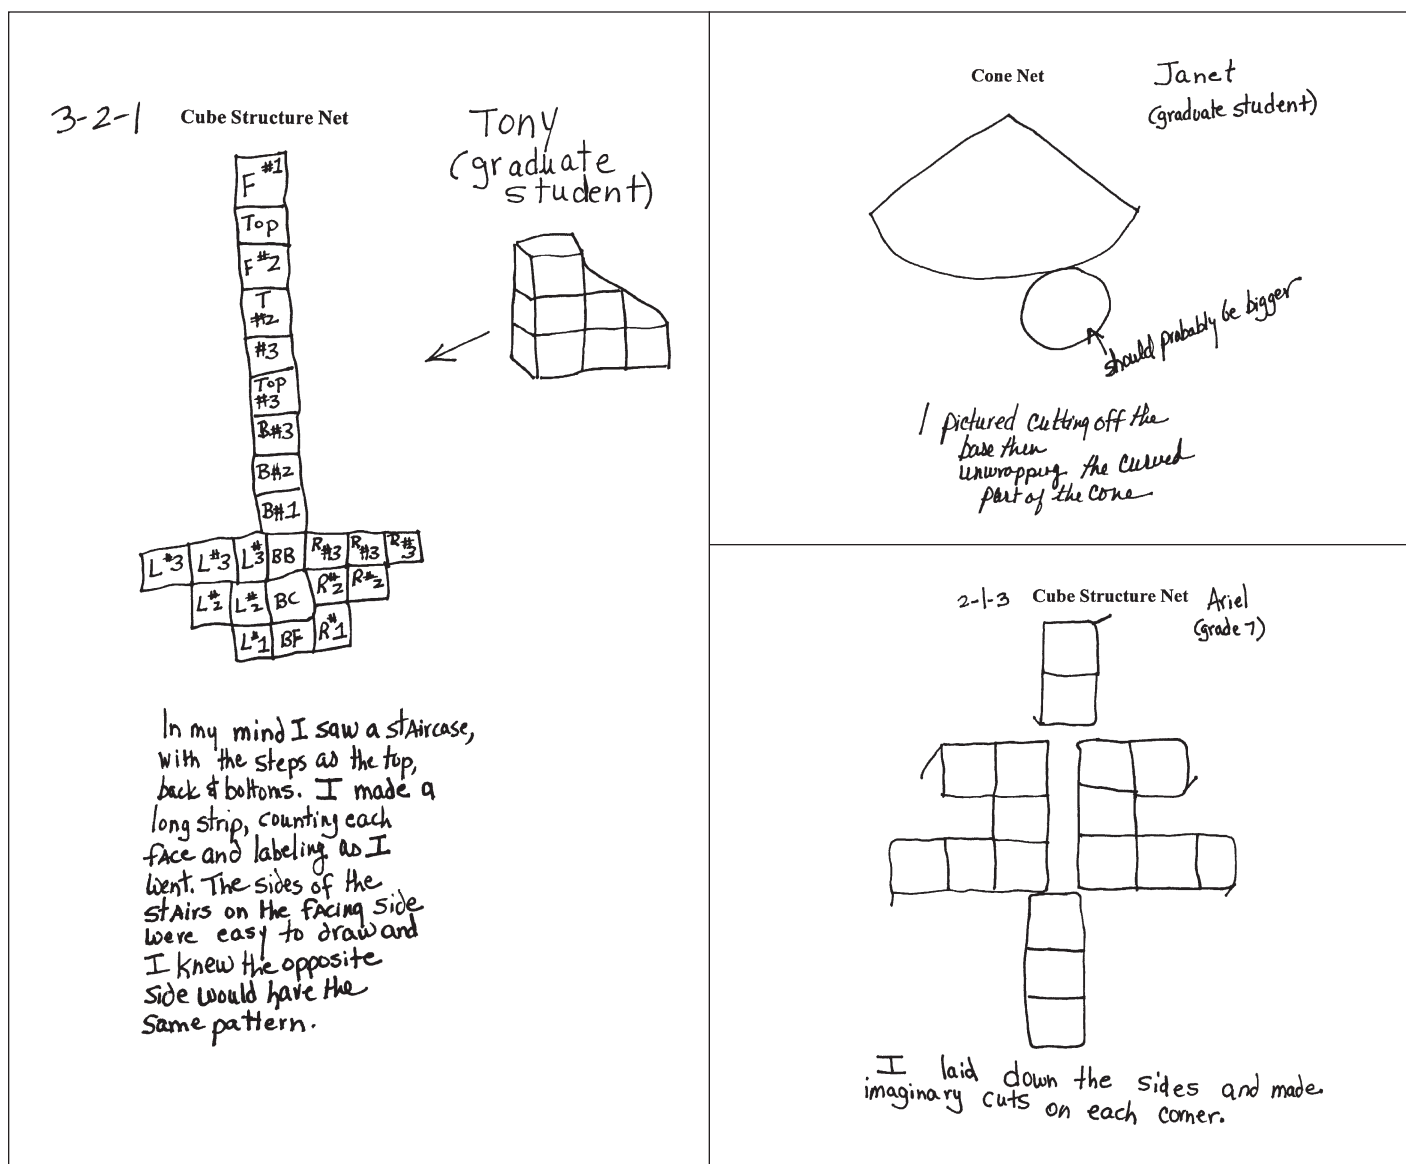 3-2-1
Cube Structure Net
Tony
(graduate
student)
F #1
Top
F #2
T
#2
#3
Top
#3
B#3
B#2
B#1
L#3 L#3 L#3 BB R#3 R#3 R#3
L#2 L#2 BC R#2 R#2
L#1 BF R#1
In my mind I saw a stAircase,
with the steps as the top,
back & bottoms. I made a
long strip, counting each
fAce and labeling as I
went. The sides of the
stAirs on the fAcing side
were easy to draw and
I knew the opposite
side would have the
same pattern.
Cone Net
Janet
(graduate student)
should probably be bigger
I pictured cutting off the
base then
unwrapping the curved
part of the cone
2-1-3
Cube Structure Net
Ariel
(grade 7)
I laid down the sides and made
imaginary cuts on each corner.